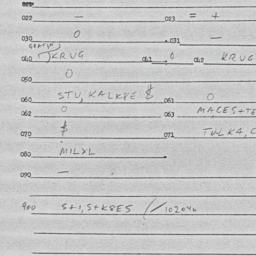 022 — 023 = +
030 0 031 —
040 KRUG 041 0 042 KRUG
050 0
060 STU, KALKSE & 061 0
062 0 063 MACES+TE
070 $ 071 TULKA, C
080 MILXL
090 —
900 S+1, S+K8ES /10204u